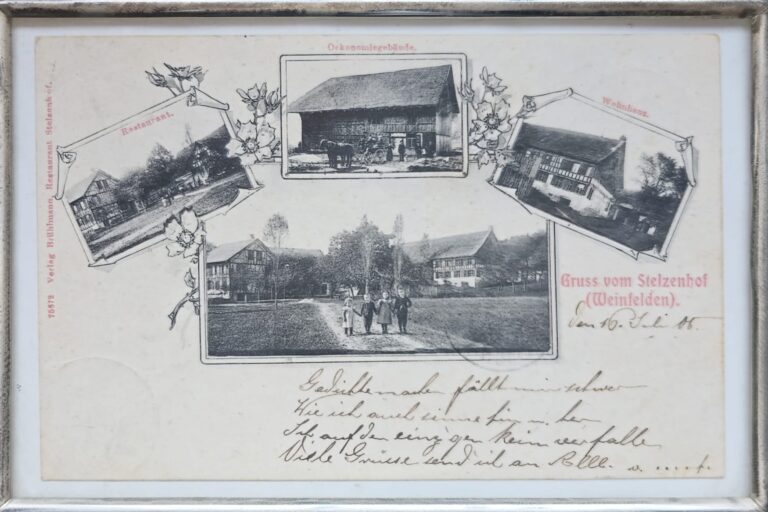 Oekonomiegebäude.
Restaurant.
Wohnhaus.
75872 Verlag Brühlmann, Restaurant Stelzenhof.
Gruss vom Stelzenhof
(Weinfelden).
den 16. Juli 06.
Gedichte machen fällt mir schwer
Wie ich auch sinne hin u. her
Ich auf den einzigen Reim verfalle
Viele Grüsse send ich an Alle.